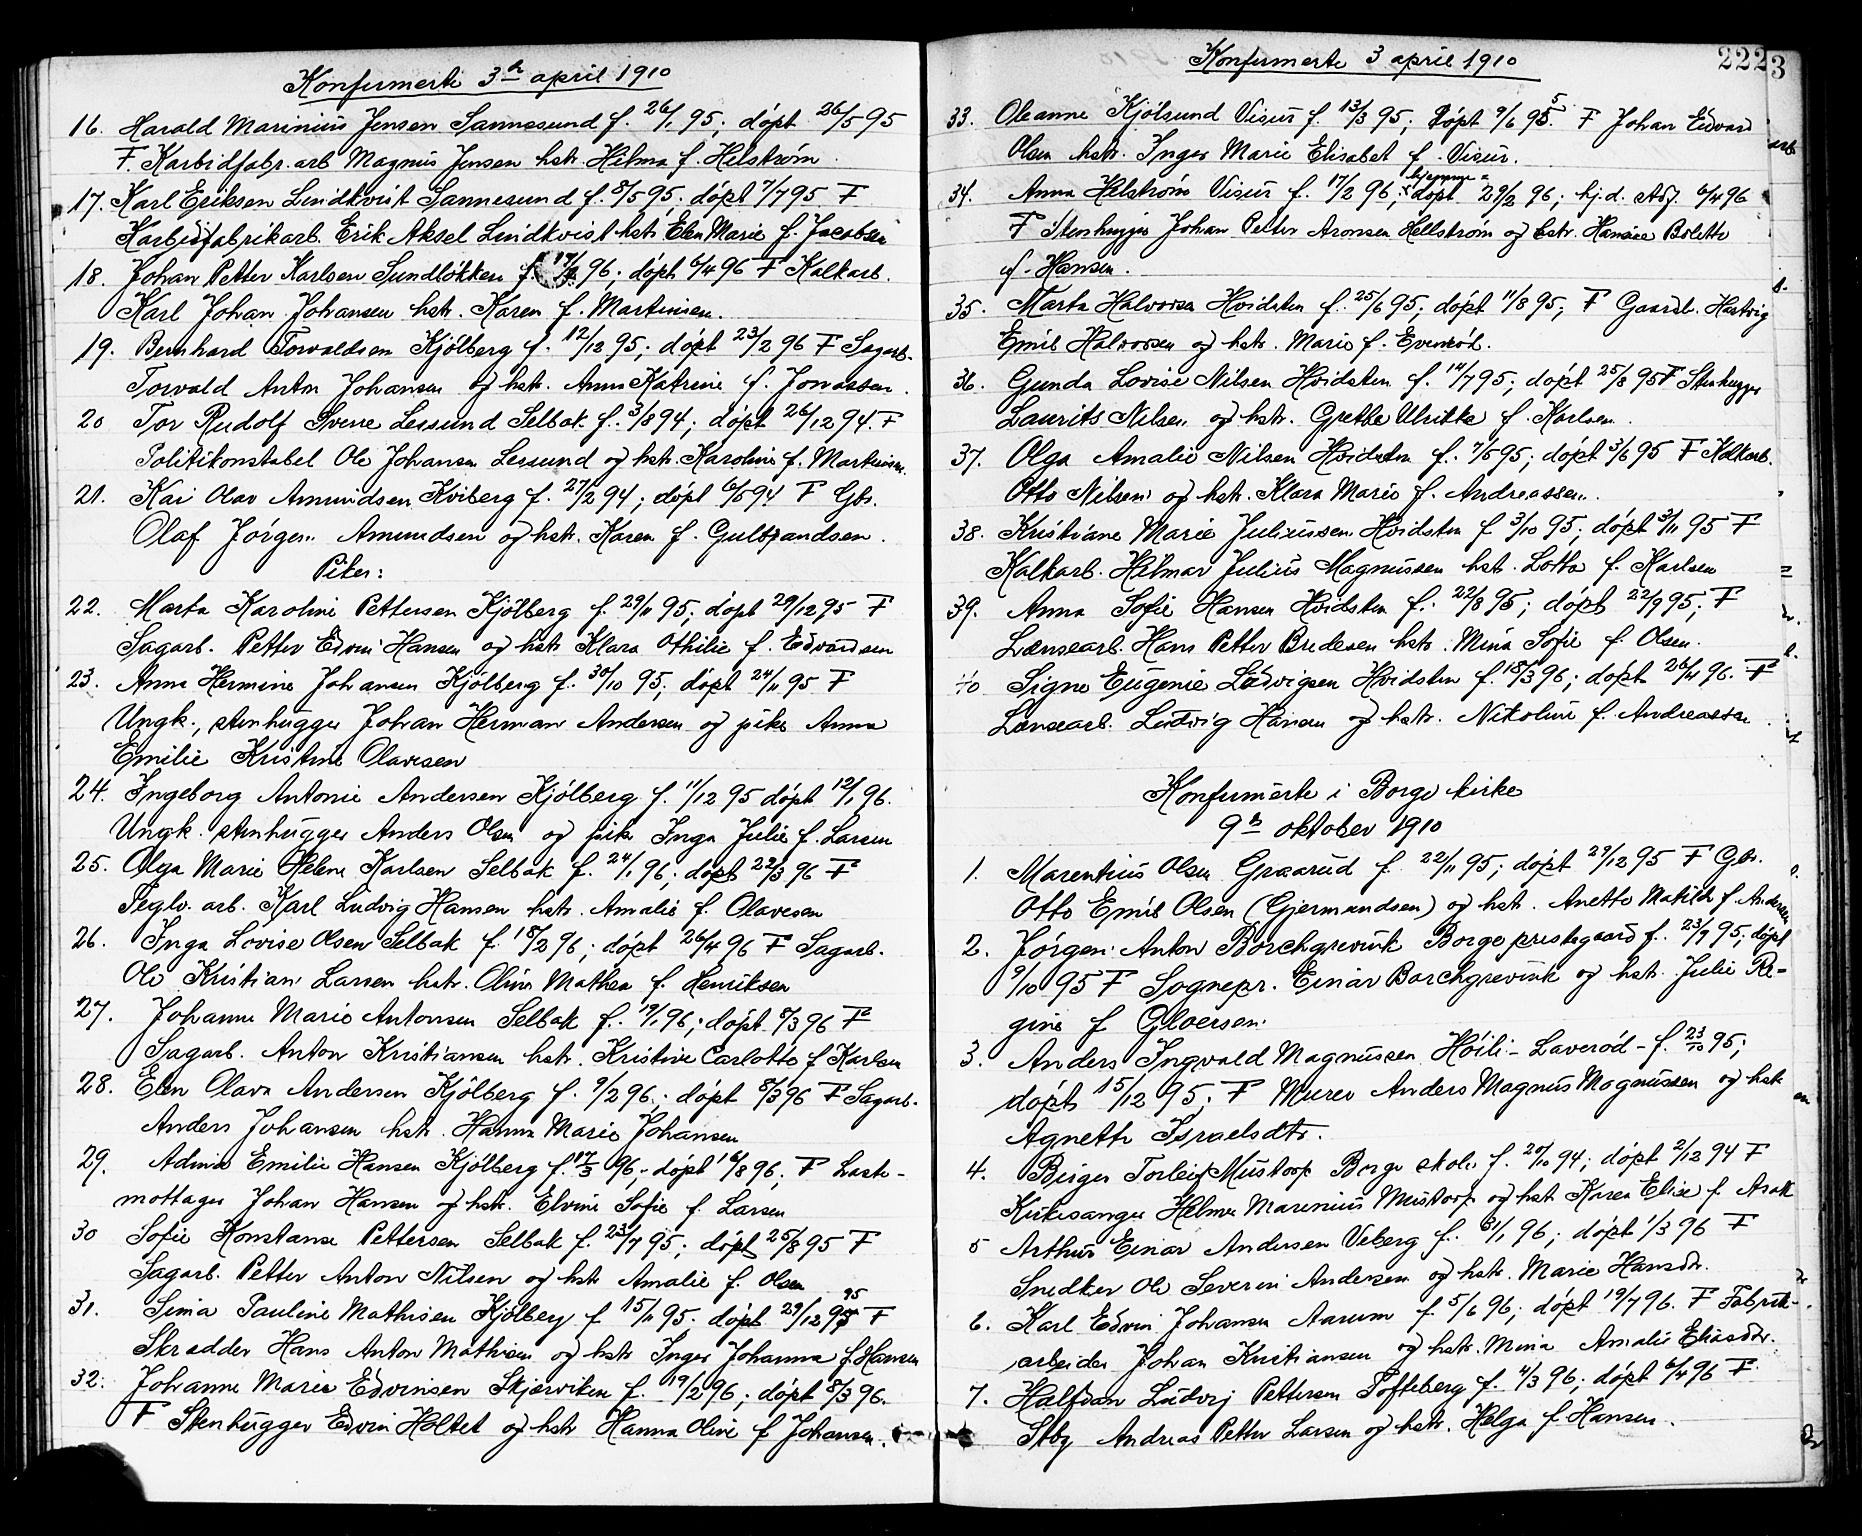 Konfirmerte 3die april 1910
16. Harald Marinius Jensen Sannesund f. 26/1 95; döpt 26/5 95
F. Karbidfabr. arb Magnus Jensen hstr. Hilma f. Helström.
17. Karl Eriksen Lindkvist Sannesund f. 8/5 95; döpt 7/7 95 F
Karbidfabrikarb. Erik Aksel Lindkvist hstr Elen Marie f. Jacobsen
18. Johan Petter Karlsen Sundlökken f. 17/2 96; döpt 6/4 96 F Kalkarb.
Karl Johan Johansen hstr. Karen f. Martinsen.
19. Bernhard Torvaldsen Kjölberg f. 12/12 95; döpt 23/2 96 F Sagarb.
Torvald Anton Johansen og hstr. Anna Katrine f. Jonassen.
20 Tor Rudolf Sverre Lessund Selbak f. 3/8 94; döpt 26/12 94. F
Politikonstabel Ole Johansen Lessund og hstr. Karoline f. Martinsen.
21. Kai Olav Amundsen Kviberg f. 27/2 94; döpt 6/5 94 F Gbr.
Olaf Jörgen Amundsen og hstr. Karen f. Gulbrandsen.
Piker:
22. Marta Karoline Pettersen Kjölberg f. 29/11 95; döpt 29/12 95 F
Sagarb. Petter Edvin Hansen og hstr Klara Othilie f. Edvardsen
23. Anna Hermine Johansen Kjölberg f. 30/10 95. döpt 24/11 95 F
Ungk., stenhugger Johan Herman Andersen og pike Anna
Emilie Kristine Olavesen
24. Ingeborg Antonie Andersen Kjölberg f. 11/12 95 döpt 12/1 96.
Ungk. stenhugger Anders Olsen og pike Inga Julie f. Larsen
25. Olga Marie Helene Karlsen Selbak f. 24/1 96; döpt 22/3 96 F
Teglv. arb. Karl Ludvig Hansen hstr. Amalie f. Olavesen
26. Inga Lovise Olsen Selbak f. 18/2 96; döpt 26/4 96 F Sagarb.
Ole Kristian Larsen hstr. Olava Mathea f. Henriksen
27. Johanne Marie Antonsen Selbak f. 19/1 96; döpt 8/3 96 F
Sagarb. Anton Kristiansen hstr. Kristine Carlotte f Karlsen
28. Elen Olava Andersen Kjölberg f. 9/2 96; döpt 8/3 96 F Sagarb.
Anders Johansen hstr. Hanna Marie Johansen
29. Emilie Hansen Kjölberg f. 17/3 96; döpt 16/8 96; F Laste-
mottager Johan Hansen og hstr. Elvine Sofie f. Larsen
30 Sofie Konstanse Pettersen Selbak f. 23/7 95; döpt 25/8 95 F
Sagarb. Petter Anton Nilsen og hstr Amalie f. Olsen
31. Sina Pauline Mathisen Kjölberg f 15/11 95; döpt 29/12 95 F
Skredder Hans Anton Mathisen og hstr Inger Johanna f. Hansen
32. Johanne Marie Edvinsen Skjærviken f. 19/2 96; döpt 8/3 96.
F Stenhugger Edvin Holtet og hstr Hanna Olive f Johansen.
Konfirmerte 3 april 1910
222
33. Oleanne Kjölsund Visur f. 13/3 95; döpt 9/6 95. F Johan Edvard
Olsen hstr. Inger Marie Elisabet f. Visur.
34. Anna Helström Visur f. 17/2 96; hjemme- döpt 29/2 96; hj.d. 6/4 96
F Stenhugger Johan Petter Aronsen Hellström og hstr. Hansine Bolette
f. Hansen.
35. Marta Halvorsen Hvidsten f. 25/6 95; döpt 11/8 95; F Gaardb. Hartvig
Emil Halvorsen og hstr. Marie f. Evenröd.
36. Gunda Lovise Nilsen Hvidsten f. 14/7 95; döpt 25/8 95 F Stenhugger
Laurits Nilsen og hstr. Grethe Ulrikke f. Karlsen.
37. Olga Amalie Nilsen Hvidsten f. 7/5 95; döpt 3/6 95 F Kalkarb.
Otto Nilsen og hstr. Klara Marie f. Andreassen.
38. Kristiane Marie Juliussen Hvidsten f 3/10 95; döpt 3/11 95 F
Kalkarb. Hilmar Julius Magnussen hst. Lotta f. Karlsen
39. Anna Sofie Hansen Hvidsten f. 22/8 95; döpt 22/9 95; F
Lænsearb. Hans Petter Bredesen hstr. Mina Sofie f Olsen.
40 Signe Eugenie Ludvigsen Hvidsten f. 18/3 96; döpt 26/4 96. F
Lænsearb. Ludvig Hansen og hstr. Nikoline f. Andreassen.
Konfirmerte i Borge kirke
9de oktober 1910
1. Marentius Olsen Graarud f. 22/11 95; döpt 29/12 95 F Gbr.
Otto Emil Olsen (Gjermundsen) og hstr. Anette Matilde f. Andersen
2. Jörgen Anton Borchgrevink Borge prestegaard f. 23/7 95; döpt
9/10 95 F Sognepr. Einar Borchgrevink og hstr. Julie Re-
gine f Gloersen.
3. Anders Ingvald Magnussen Höili - Laveröd - f. 23/10 95;
döpt 15/12 95; F Murer Anders Magnus Magnussen og hstr
Agnethe Israelsdtr.
4. Birger Torleif Mustorp Borge skole f. 20/10 94; döpt 2/12 94 F
Kirkesanger Helmer Marenius Mustorp og hstr Karen Elise f. Arak
5 Arthur Einar Andersen Veberg f. 31/1 96; döpt 1/3 96 F
Snedker Ole Severin Andersen og hstr. Marie Hansdtr.
6. Karl Edvin Johansen Aarum f. 5/6 96; döpt 19/7 96. F Fabrik-
arbeider Johan Kristiansen og hstr. Mina Amalie Eliasdtr.
7. Halfdan Ludvig Pettersen Tofteberg f. 4/3 96; döpt 6/4 96 F.
Stbg Andreas Petter Larsen og hstr. Helga f. Hansen.